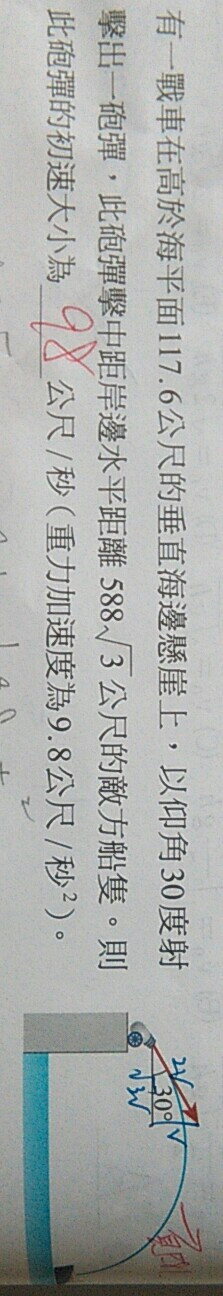 有一戰車在高於海平面117.6公尺的垂直海邊懸崖上，以仰角30度射
擊出一砲彈，此砲彈擊中距岸邊水平距離588√3公尺的敵方船隻。則
此砲彈的初速大小為 98 公尺/秒（重力加速度為9.8公尺/秒²）。
2V
30°
V
√3V